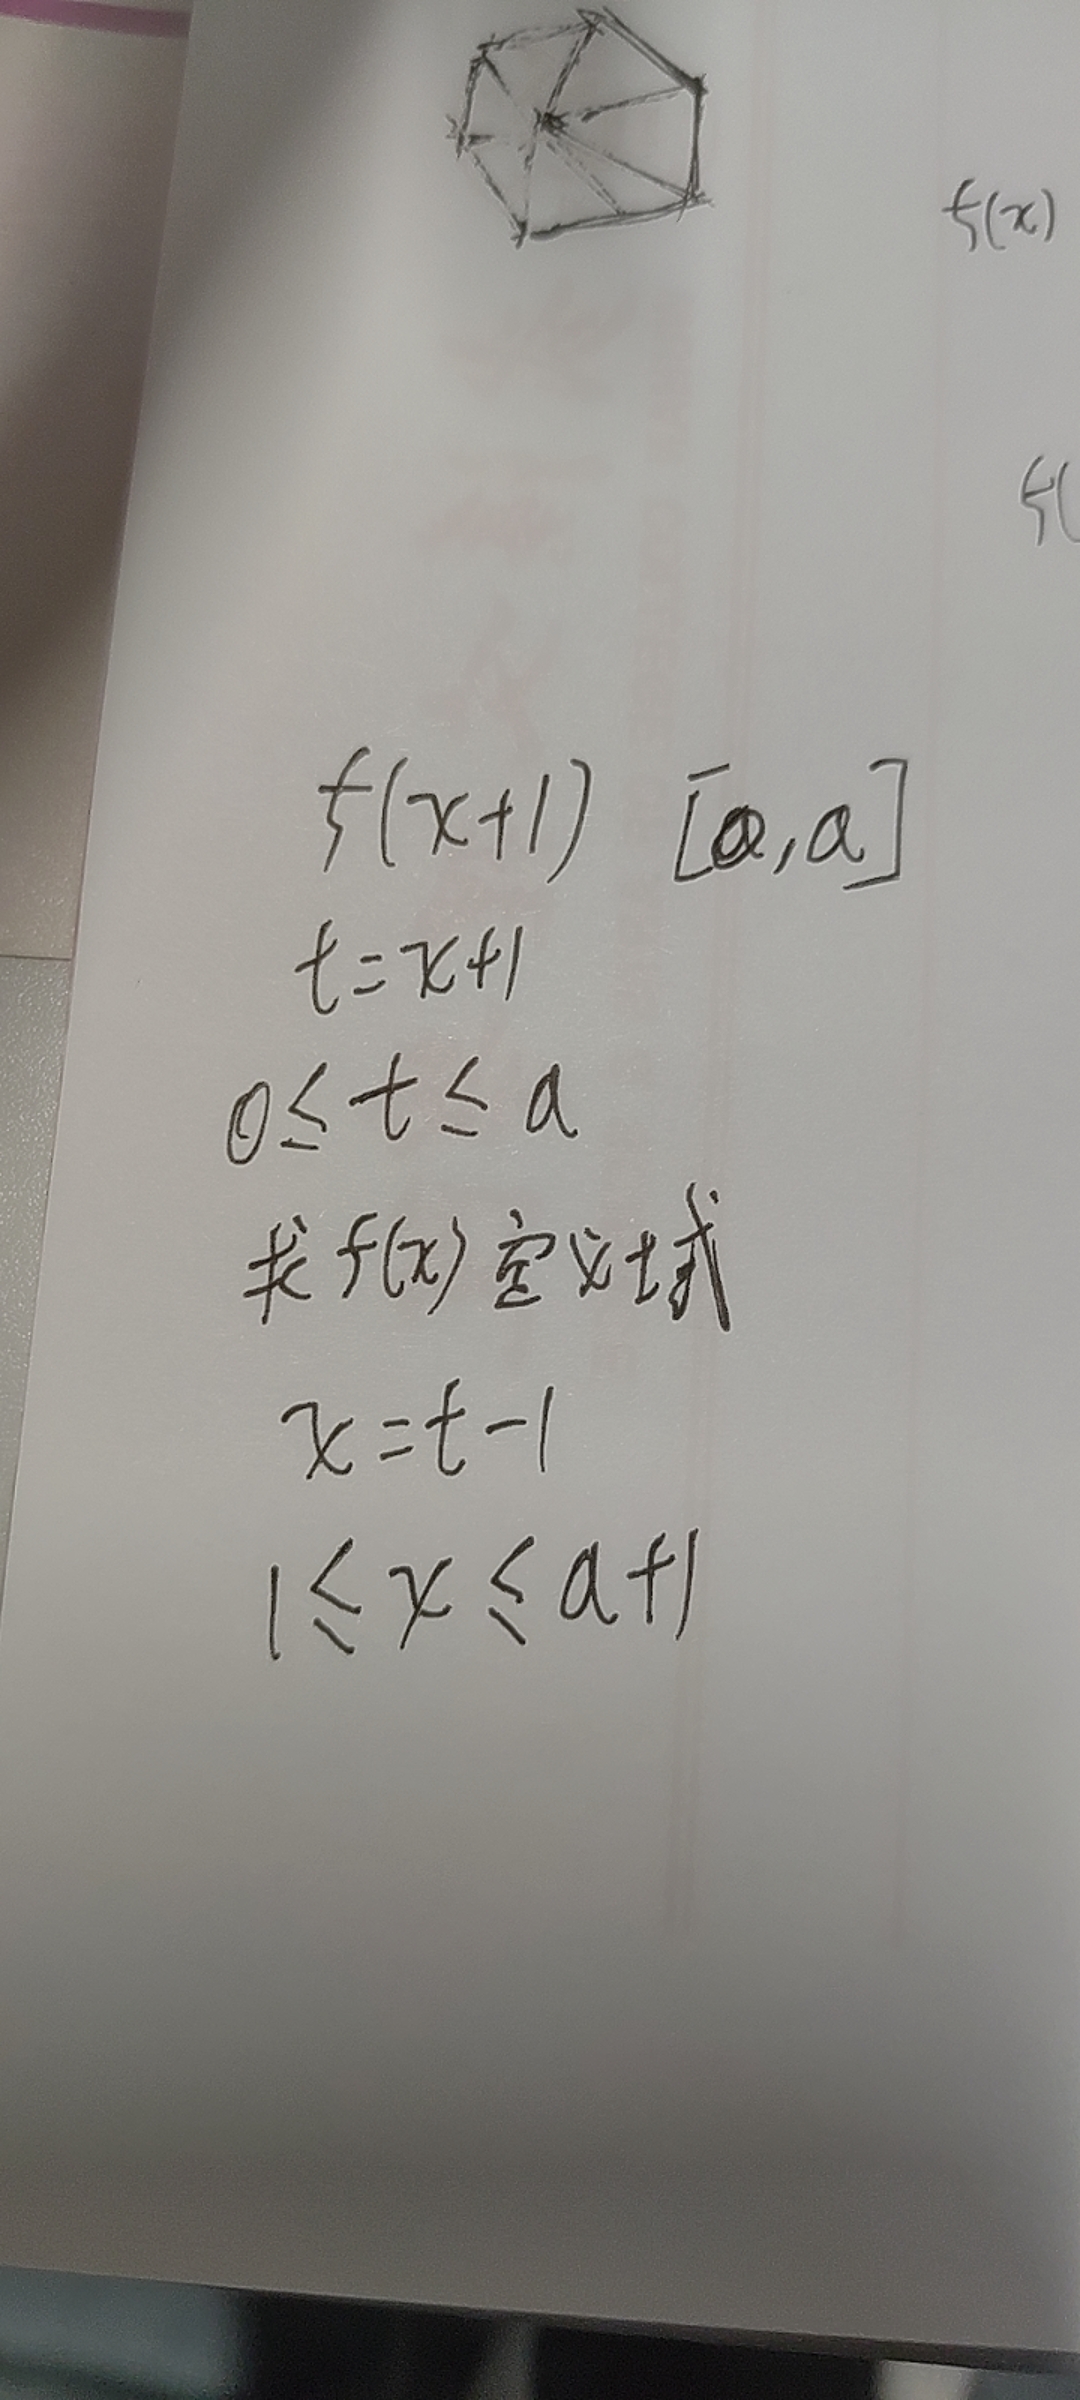 f(x)
f(
f(x+1) [0,a]
t=x+1
0≤t≤a
求f(x)定义域
x=t-1
1≤x≤a+1